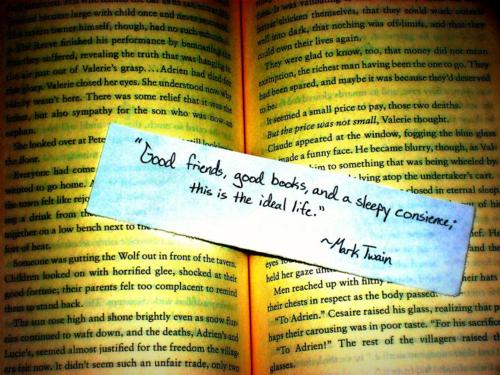 became large with child once and never
owner himself, though, had no such
Reeve finished his performance by bemoaning
suffered, revealing the truth that was
just out of Valerie's grasp.... Adrien had died
Valerie closed her eyes. She understood now why
wasn't here. There was some relief that it was
but also sympathy for the son who was now an
orphan.
She looked over at Pete
the floor.
Everyone had come
wanted to go home.
the town felt like reje
ing a drink from th
together on a low bench next to the
feet of beat.
Someone was gutting the Wolf out in front of the tavern.
Children looked on with horrified glee, shocked at their
good fortune; their parents felt too complacent to remind
them to stand back.
The sun rose high and shone brightly even as snow
continued to waft down, and the deaths, Adrien's and
Lucie's, seemed almost justified for the freedom the villag-
ers felt now. It didn't seem such an unfair trade, only two
It was vaulting
chicken themselves, that they could work outside
well into dark, that nothing was off-limits, and that they
could own their lives again.
They were glad to know, too, that money did not mean
exemption, the richest man having been the one to go. They
had been spared, and maybe it was because they'd deserved
to be.
It seemed a small price to pay, those two deaths.
But the price was not small, Valerie thought.
Claude appeared at the window, fogging the blue glass
made a funny face. He became blurry, though, as Val-
him to something that was being wheeled by
lying atop the undertaker's cart.
closed in eternal sleep
of his
eyes
held her gaze unti
Men reached up with filthy
their chests in respect as the body passed.
"To Adrien." Cesaire raised his glass, realizing that per-
haps their carousing was in poor taste. "For his sacrifice
"To Adrien!" The rest of the villagers raised their
glasses.
"Good friends, good books, and a sleepy consience;
this is the ideal life."
~Mark Twain